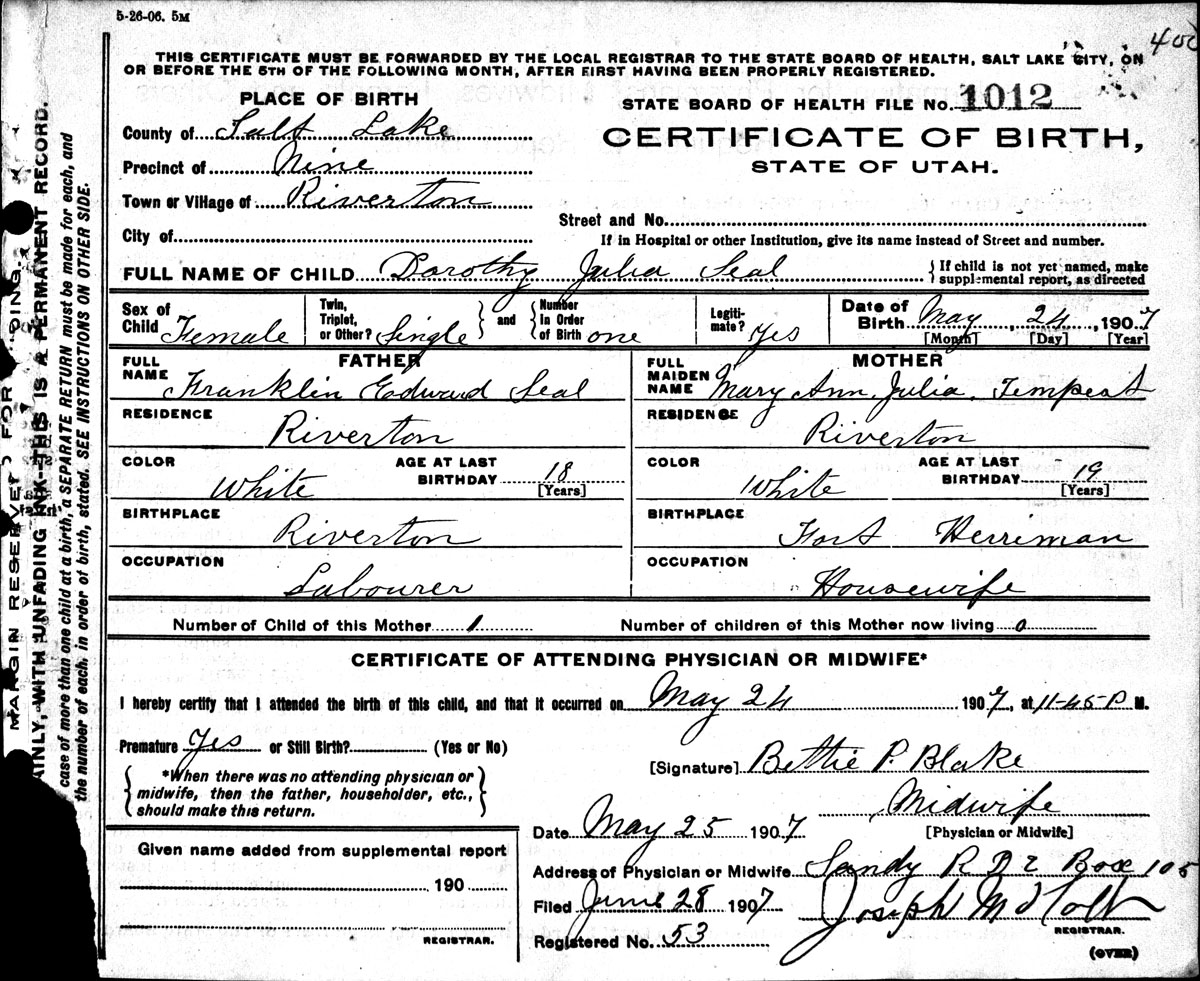 5-26-06. 5M
400
THIS CERTIFICATE MUST BE FORWARDED BY THE LOCAL REGISTRAR TO THE STATE BOARD OF HEALTH, SALT LAKE CITY, ON
OR BEFORE THE 5TH OF THE FOLLOWING MONTH, AFTER FIRST HAVING BEEN PROPERLY REGISTERED.
PLACE OF BIRTH
STATE BOARD OF HEALTH FILE No. 1012
County of Salt Lake
CERTIFICATE OF BIRTH,
Precinct of Nine
STATE OF UTAH.
Town or Village of Riverton
Street and No.
City of
If in Hospital or other Institution, give its name instead of Street and number.
FULL NAME OF CHILD Dorothy Julia Seal
{If child is not yet named, make
supplemental report, as directed
Sex of Child Female
Twin, Triplet, or Other? Single
and
Number in Order of Birth one
Legiti-mate? Yes
Date of Birth May, 24, 1907
[Month] [Day] [Year]
FATHER
FULL NAME Franklin Edward Seal
RESIDENCE
Riverton
COLOR White
AGE AT LAST BIRTHDAY 18
[Years]
BIRTHPLACE
Riverton
OCCUPATION
Labourer
MOTHER
FULL MAIDEN NAME Mary Ann Julia Tempest
RESIDENCE
Riverton
COLOR White
AGE AT LAST BIRTHDAY 19
[Years]
BIRTHPLACE
Fort Herriman
OCCUPATION
Housewife
Number of Child of this Mother 1
Number of children of this Mother now living 0
CERTIFICATE OF ATTENDING PHYSICIAN OR MIDWIFE*
I hereby certify that I attended the birth of this child, and that it occurred on May 24 1907, at 11-45 P M.
Premature Yes or Still Birth? (Yes or No)
{*When there was no attending physician or
midwife, then the father, householder, etc.,
should make this return.}
[Signature] Bettie P. Blake
Midwife
[Physician or Midwife]
Date May 25 1907
Address of Physician or Midwife Sandy R D 2 Box 105
Filed June 28 1907
REGISTRAR.
Registered No. 53
(OVER)
Given name added from supplemental report
190
REGISTRAR.
MARGIN RESERVED FOR
WITH UNFADING INK--THIS IS A PERMANENT RECORD.
case of more than one child at a birth, a SEPARATE RETURN must be made for each, and
the number of each, in order of birth, stated. SEE INSTRUCTIONS ON OTHER SIDE.